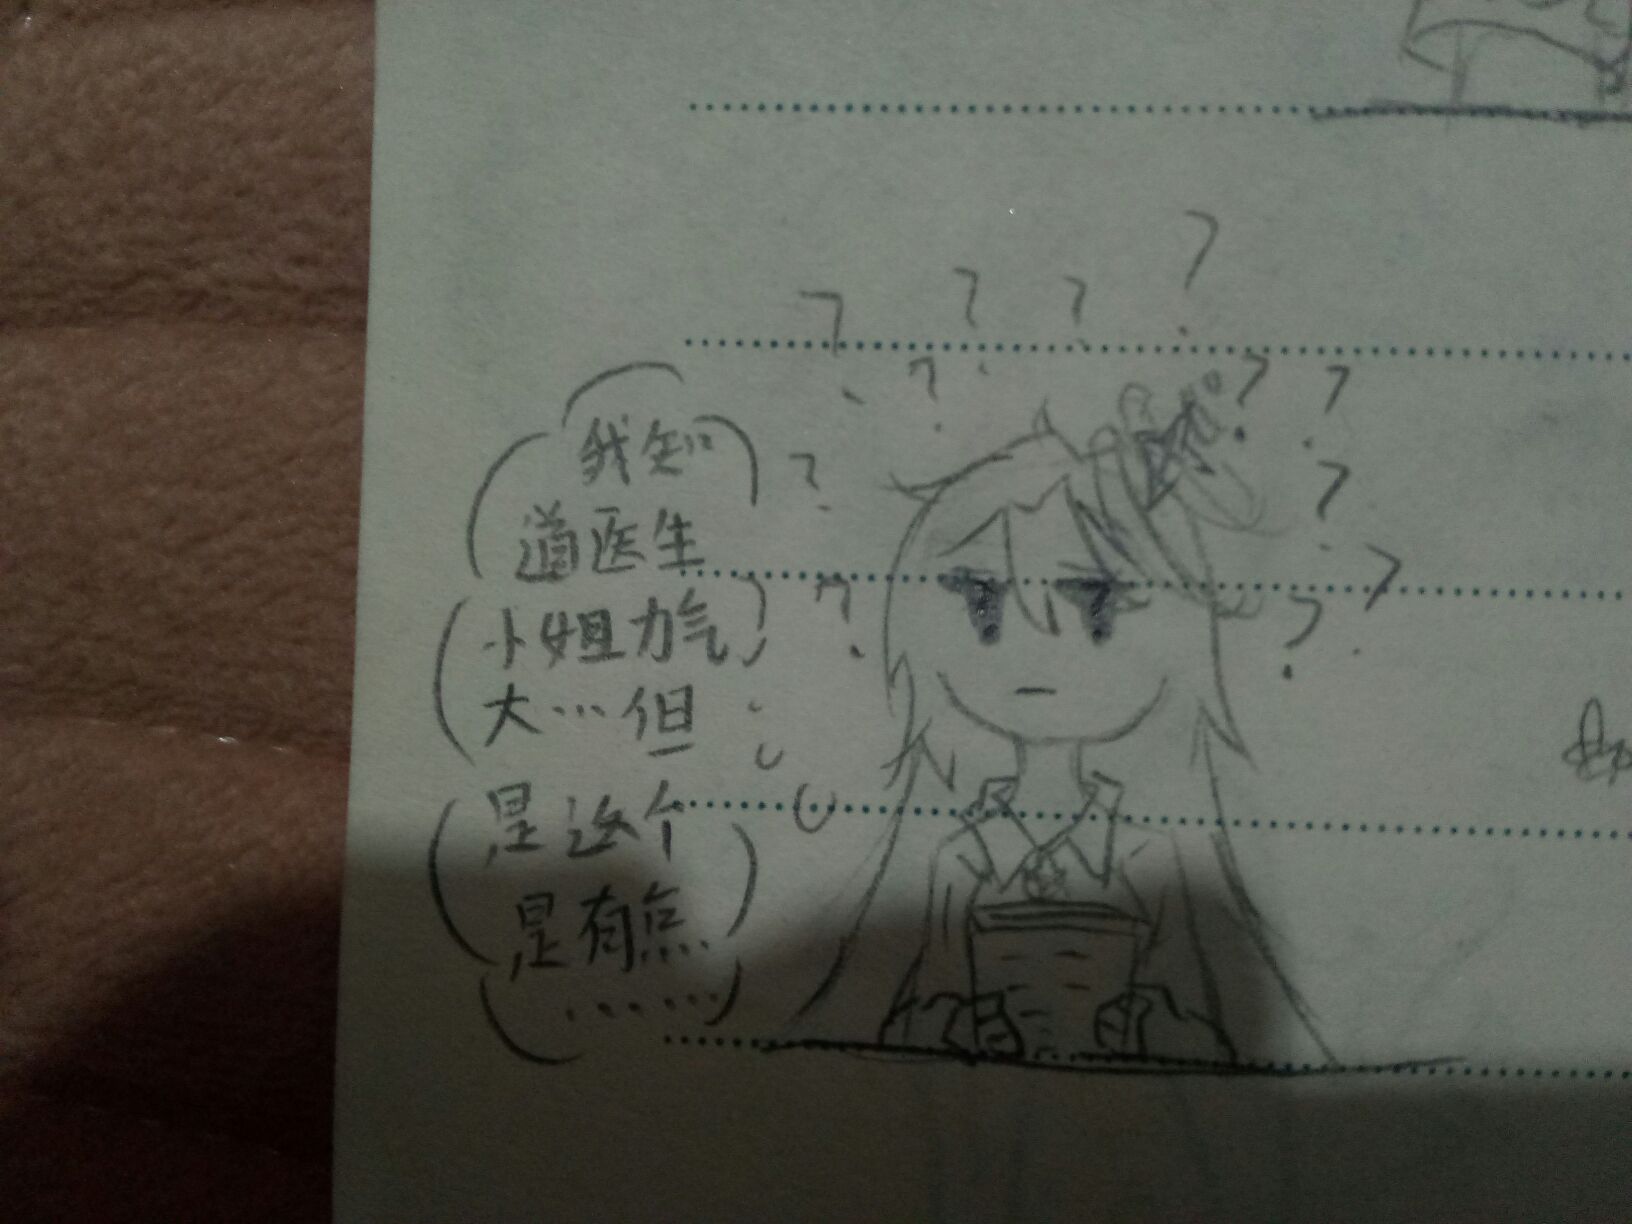 我知
道医生
小姐力气
大…但
是这个
是有点
……
? ? ? ? ? ? ? ? ? ? ? ? ?